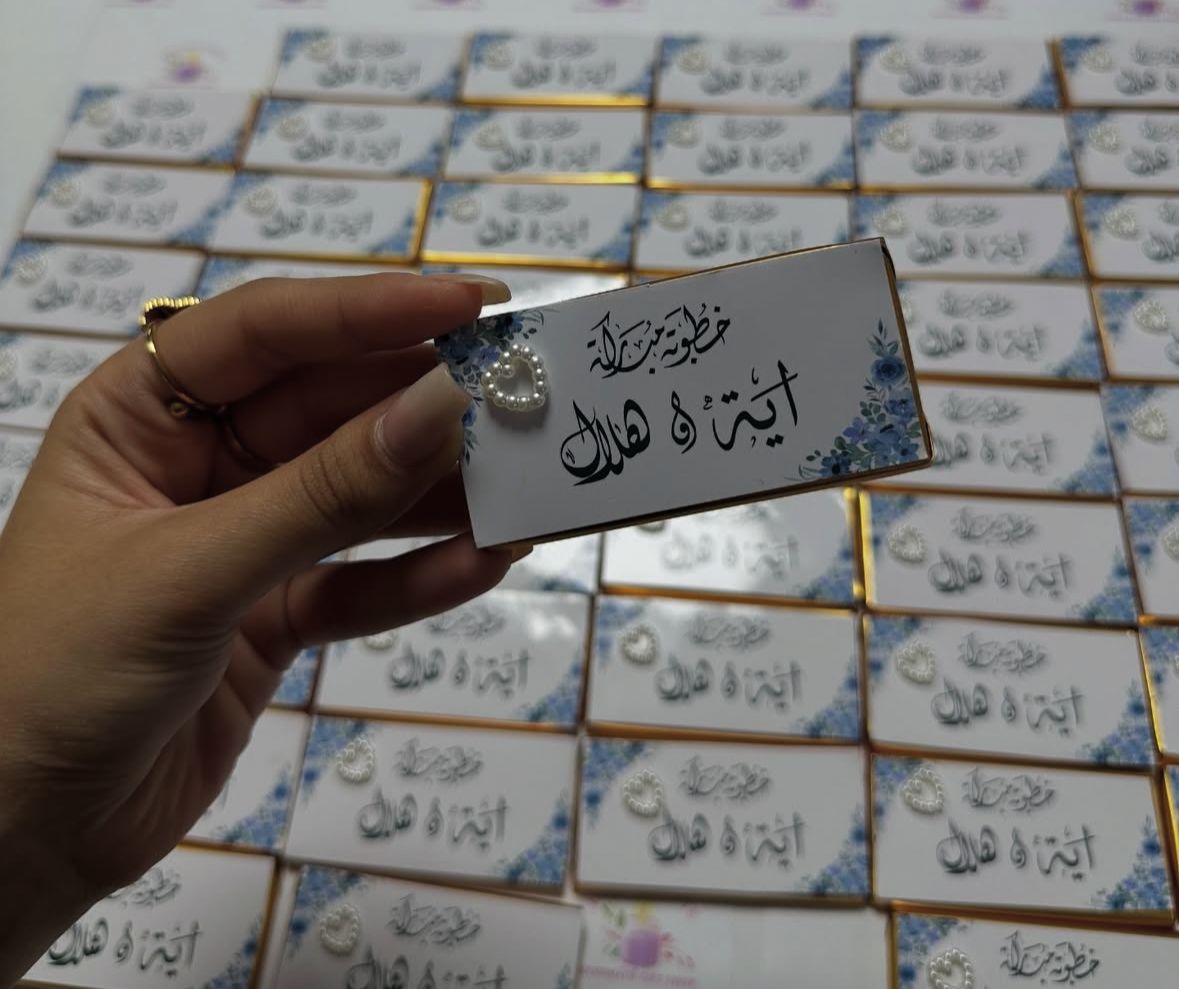 خطوبة مباركة
اية & هلال